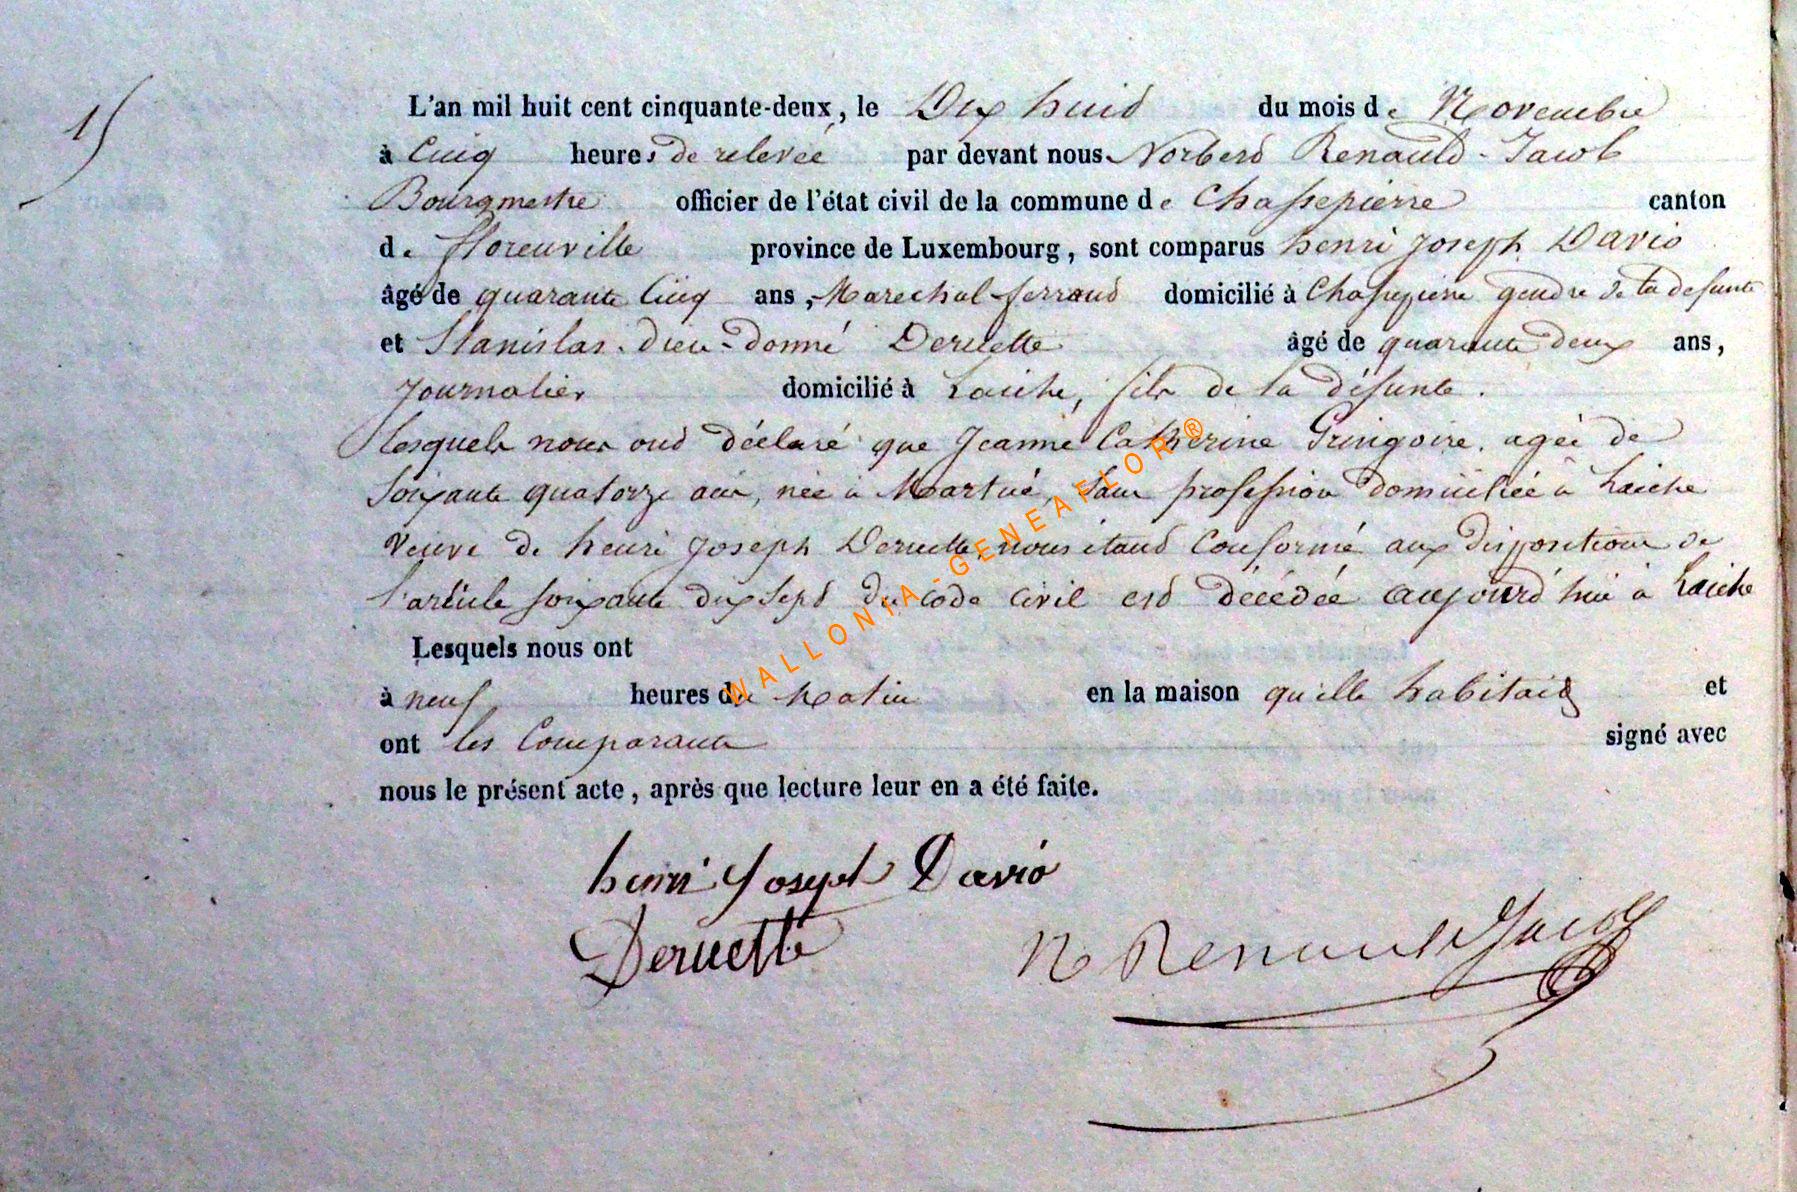 15
L'an mil huit cent cinquante-deux, le Dix huit du mois de Novembre
à Cinq heures de relevée par devant nous Norbert Renauld-Jacob
Bourgmestre officier de l'état civil de la commune de Chassepierre canton
de florenville province de Luxembourg, sont comparus henri Joseph David
âgé de quarante Cinq ans, Marechal-ferrant domicilié à Chassepierre gendre de la defunte
et Stanislas-Dieu-donné Deruette âgé de quarante deux ans,
Journalier domicilié à Laiche, fils de la défunte.
lesquels nous ont déclaré que Jeanne Catherine Gringoire, agée de
Soixante quatorze ans, née à Martué, Sans profession domiciliée à Laiche
Veuve de henri Joseph Deruette, nous étant Conformé aux dispositions de
l'article soixante dix sept du code civil est décédée aujourd'hui à Laiche
Lesquels nous ont
à neuf heures du Matin en la maison qu'elle habitait et
ont les Comparants signé avec
nous le présent acte, après que lecture leur en a été faite.
henri Joseph David
Deruette
N Renauld Jacob
WALLONIA-GENEAFLOR®